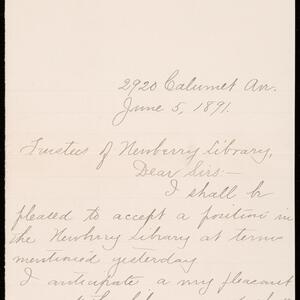 2920 Calumet Av.
June 5, 1891.
Trustees of Newberry Library,
Dear Sirs:—
I shall be
pleased to accept a position in
the Newberry Library at terms
mentioned yesterday
I anticipate a my pleasant